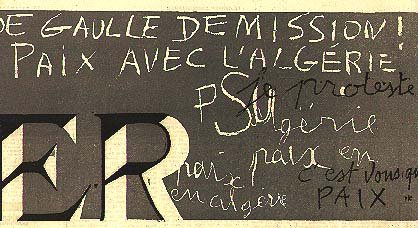 DE GAULLE DEMISSION!
PAIX AVEC L'ALGÉRIE
PSU
je proteste
algérie
paix en
paix
en algérie
c'est vous qu
PAIX
ER